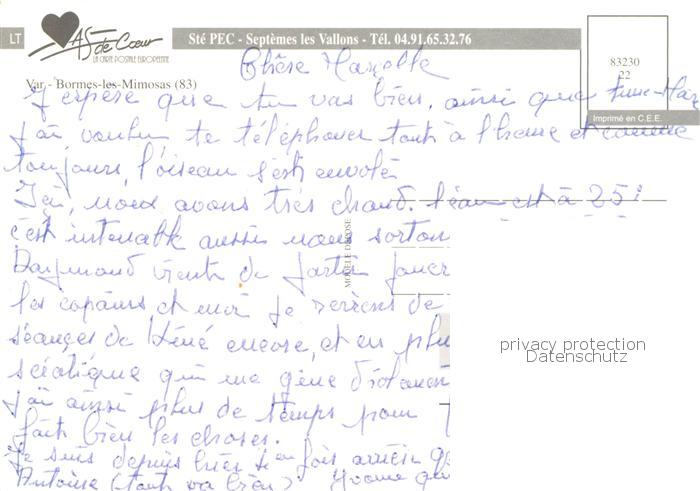 LT
AS de Cœur
LA CARTE POSTALE EUROPEENNE
Sté PEC - Septèmes les Vallons - Tél. 04.91.65.32.76
83230
22
Imprimé en C.E.E.
Var - Bormes-les-Mimosas (83)
Chère Marcelle
J'espère que tu vas bien, ainsi que
j'ai voulu te téléphoner tout à l'heure et comme
toujours, l'oiseau s'est envolé
Ici, nous avons très chaud. l'eau est à 25°
c'est intenable aussi nous sorton
MODÈLE DÉPOSÉ
Raymond vient de partir jouer
les copains et moi je reviens de
séances de kiné encore, et en plu
sciatique qui me gêne
j'ai ainsi plus de temps pour
faire bien les choses.
je suis depuis hier
Antoine (tout va bien)
privacy protection
Datenschutz